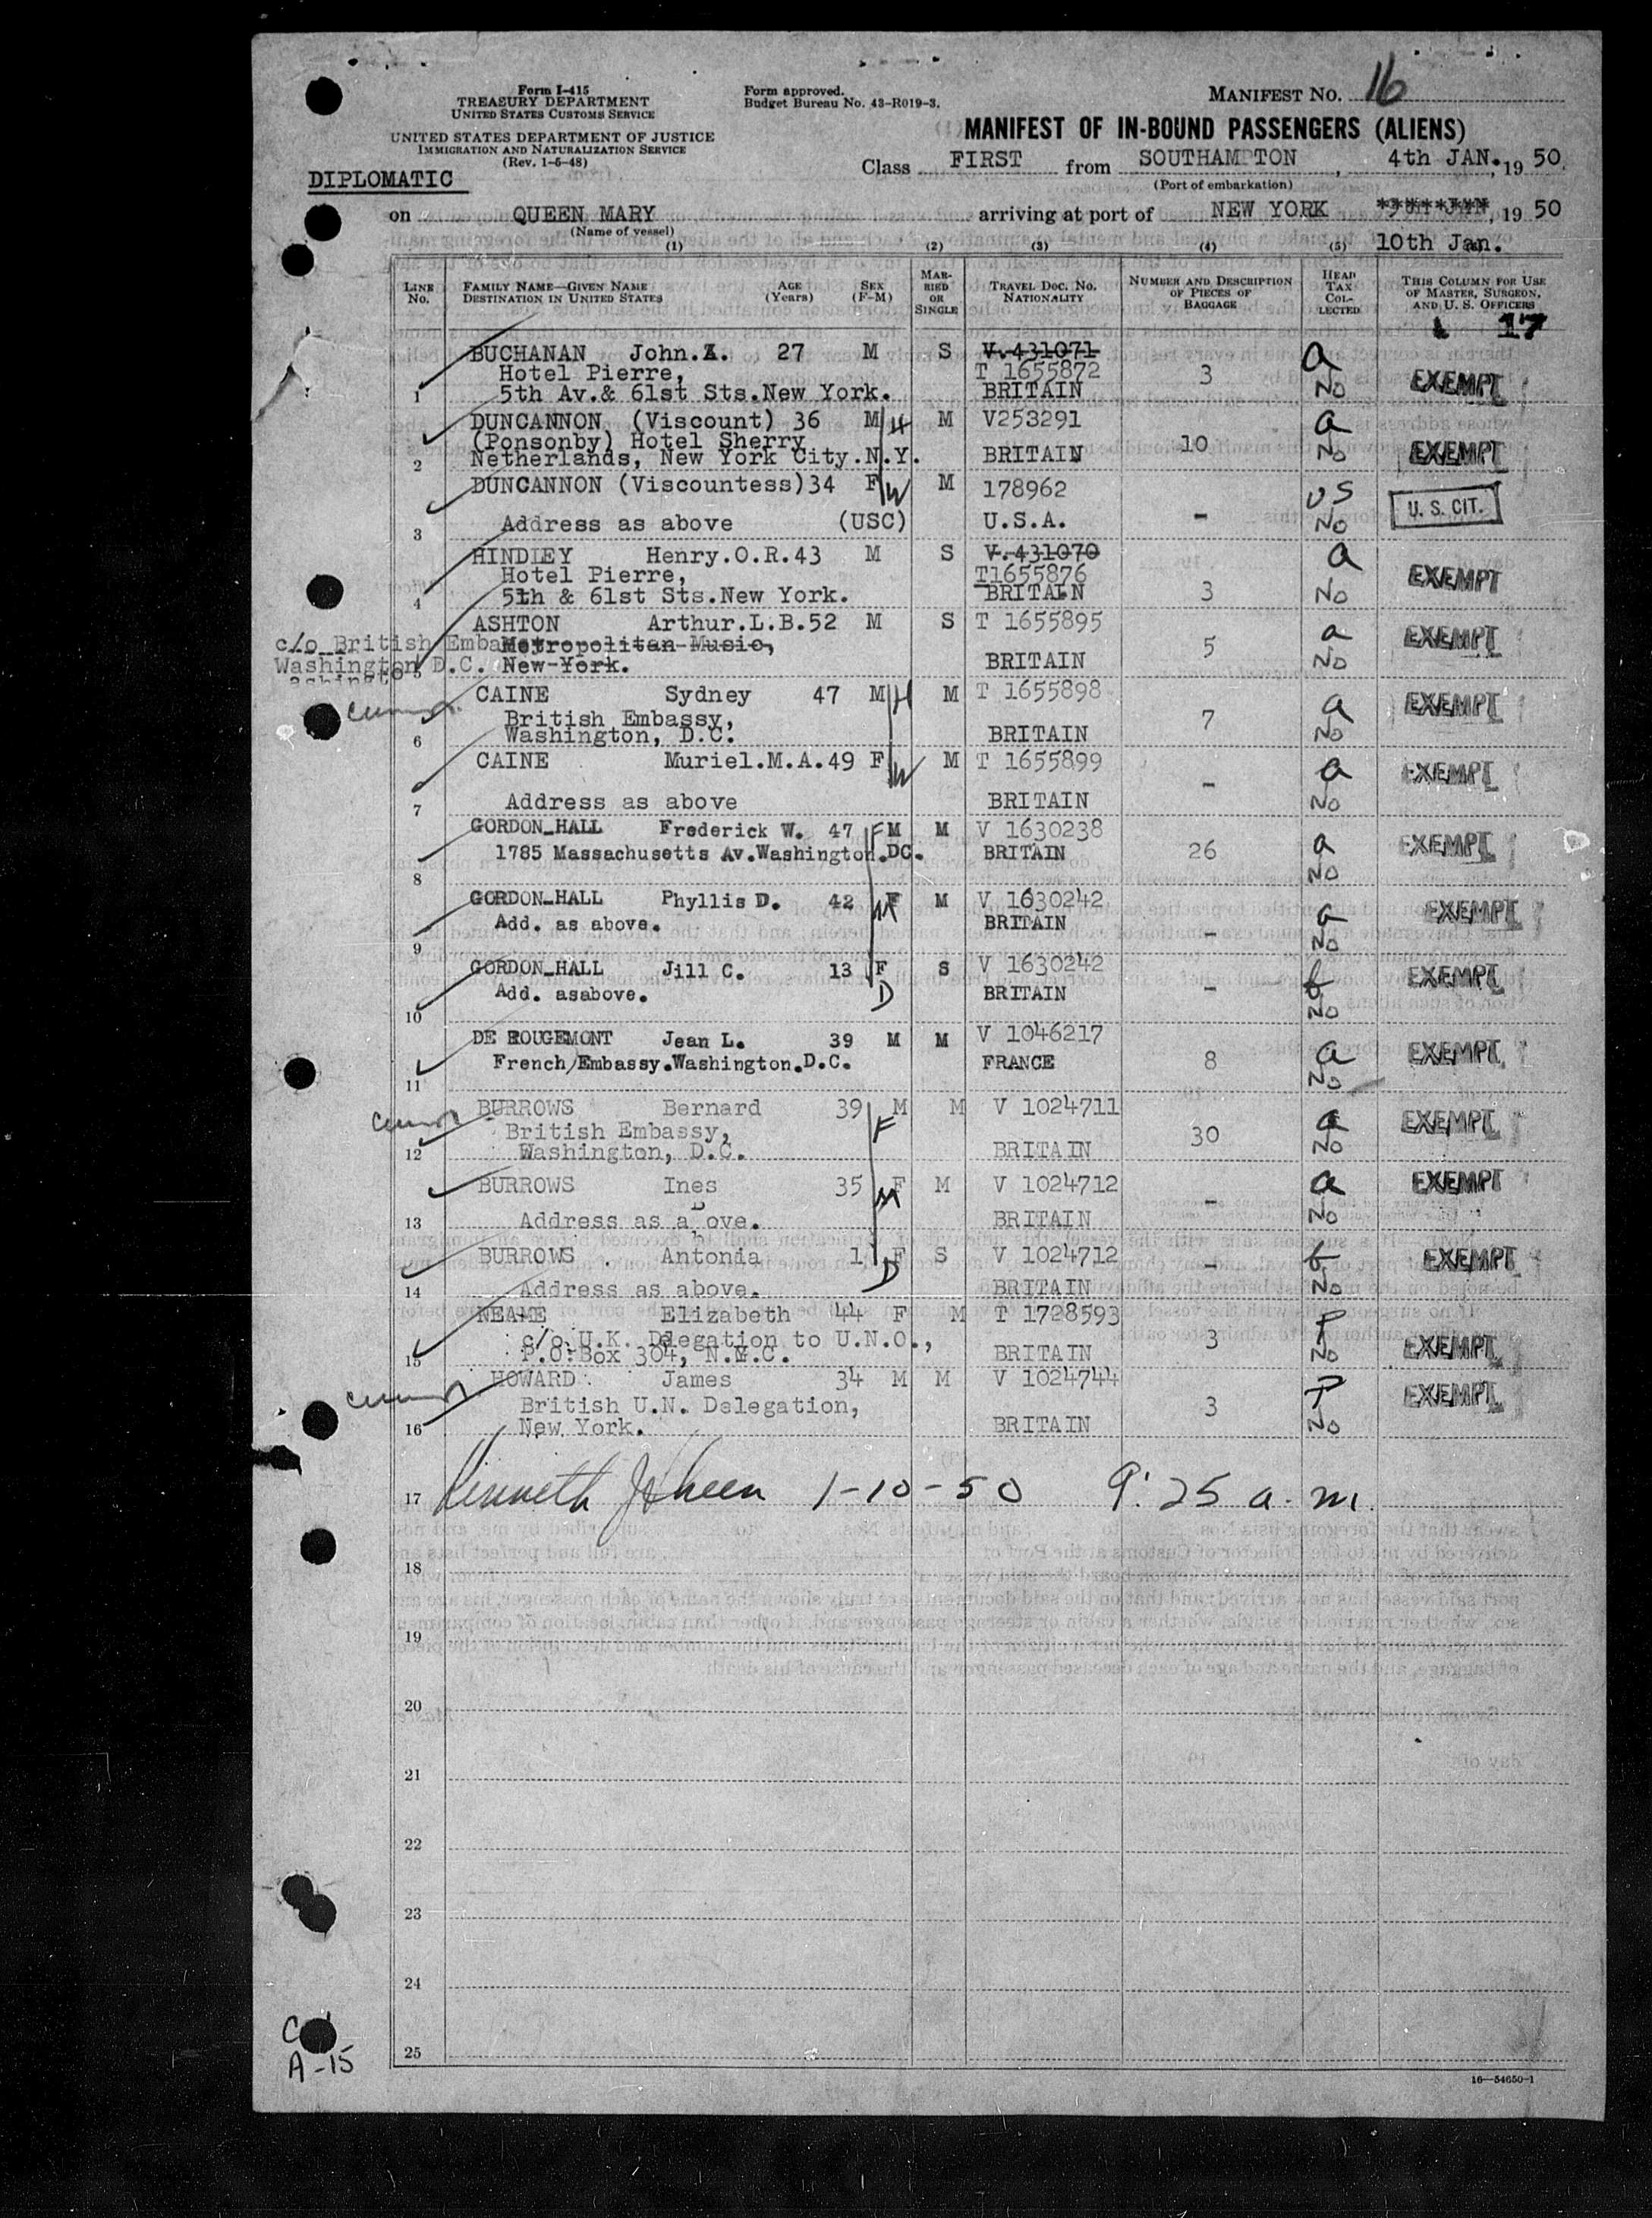 Form I-415
TREASURY DEPARTMENT
UNITED STATES CUSTOMS SERVICE
UNITED STATES DEPARTMENT OF JUSTICE
IMMIGRATION AND NATURALIZATION SERVICE
(Rev. 1-5-48)
Form approved.
Budget Bureau No. 43-R019-3.
MANIFEST NO. 16
MANIFEST OF IN-BOUND PASSENGERS (ALIENS)
Class FIRST from SOUTHAMPTON, 4th JAN., 19 50
(Port of embarkation)
DIPLOMATIC
on QUEEN MARY arriving at port of NEW YORK, 19 50
(Name of vessel)
10th Jan.
(1) (2) (3) (4) (5)
LINE No. FAMILY NAME—GIVEN NAME DESTINATION IN UNITED STATES AGE (Years) SEX (F-M) MARRIED OR SINGLE TRAVEL DOC. No. NATIONALITY NUMBER AND DESCRIPTION OF PIECES OF BAGGAGE HEAD TAX COLLECTED THIS COLUMN FOR USE OF MASTER, SURGEON, AND U. S. OFFICERS
17
BUCHANAN John. 27 M S V.431071 a
Hotel Pierre, T 1655872 3 EXEMPT
1 5th Av.& 61st Sts.New York. BRITAIN No
DUNCANNON (Viscount) 36 M H M V253291 a
(Ponsonby) Hotel Sherry 10 EXEMPT
2 Netherlands, New York City.N.Y. BRITAIN No
DUNCANNON (Viscountess)34 F W M 178962 US U. S. CIT.
3 Address as above (USC) U.S.A. - No
HINDLEY Henry.O.R.43 M S V.431070 a
Hotel Pierre, T1655876 EXEMPT
4 5th & 61st Sts.New York. BRITAIN 3 No
ASHTON Arthur.L.B.52 M S T 1655895 a EXEMPT
c/o British Embassy Metropolitan Music, 5
Washington D.C. 5 New York. BRITAIN No
CAINE Sydney 47 M H M T 1655898 a EXEMPT
British Embassy, 7
6 Washington, D.C. BRITAIN No
CAINE Muriel.M.A.49 F W M T 1655899 a EXEMPT
7 Address as above BRITAIN - No
GORDON_HALL Frederick W. 47 F M M V 1630238
1785 Massachusetts Av.Washington.DC. BRITAIN 26 a EXEMPT
8 No
GORDON_HALL Phyllis D. 42 M F M V 1630242 a EXEMPT
Add. as above. BRITAIN -
9 No
GORDON_HALL Jill C. 13 F S V 1630242 f EXEMPT
Add. asabove. D BRITAIN -
10 No
DE ROUGEMONT Jean L. 39 M M V 1046217
French/Embassy.Washington.D.C. FRANCE 8 a EXEMPT
11 No
BURROWS Bernard 39 M M V 1024711 a EXEMPT
British Embassy, F 30
12 Washington, D.C. BRITAIN No
BURROWS Ines 35 F M V 1024712 a EXEMPT
M -
13 Address as above. BRITAIN No
BURROWS Antonia 1 F S V 1024712 f EXEMPT
D -
14 Address as above. BRITAIN No
NEAME Elizabeth 44 F M T 1728593 P
c/o U.K. Delegation to U.N.O., 3 EXEMPT
15 P.O.Box 304, N.Y.C. BRITAIN No
HOWARD James 34 M M V 1024744 P EXEMPT
British U.N. Delegation, 3
16 New York. BRITAIN No
17 Kenneth 1-10-50 9:25 a.m.
18
19
20
21
22
23
24
25
A-15
16—54650-1